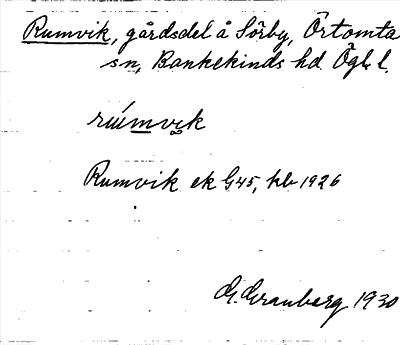 Rumvik, gårdsdel å Sörby, Örtomta
sn, Bankekinds hd Ögl. l.
rúmvik
Rumvik ek G45, kb 1926
G. Granberg 1930